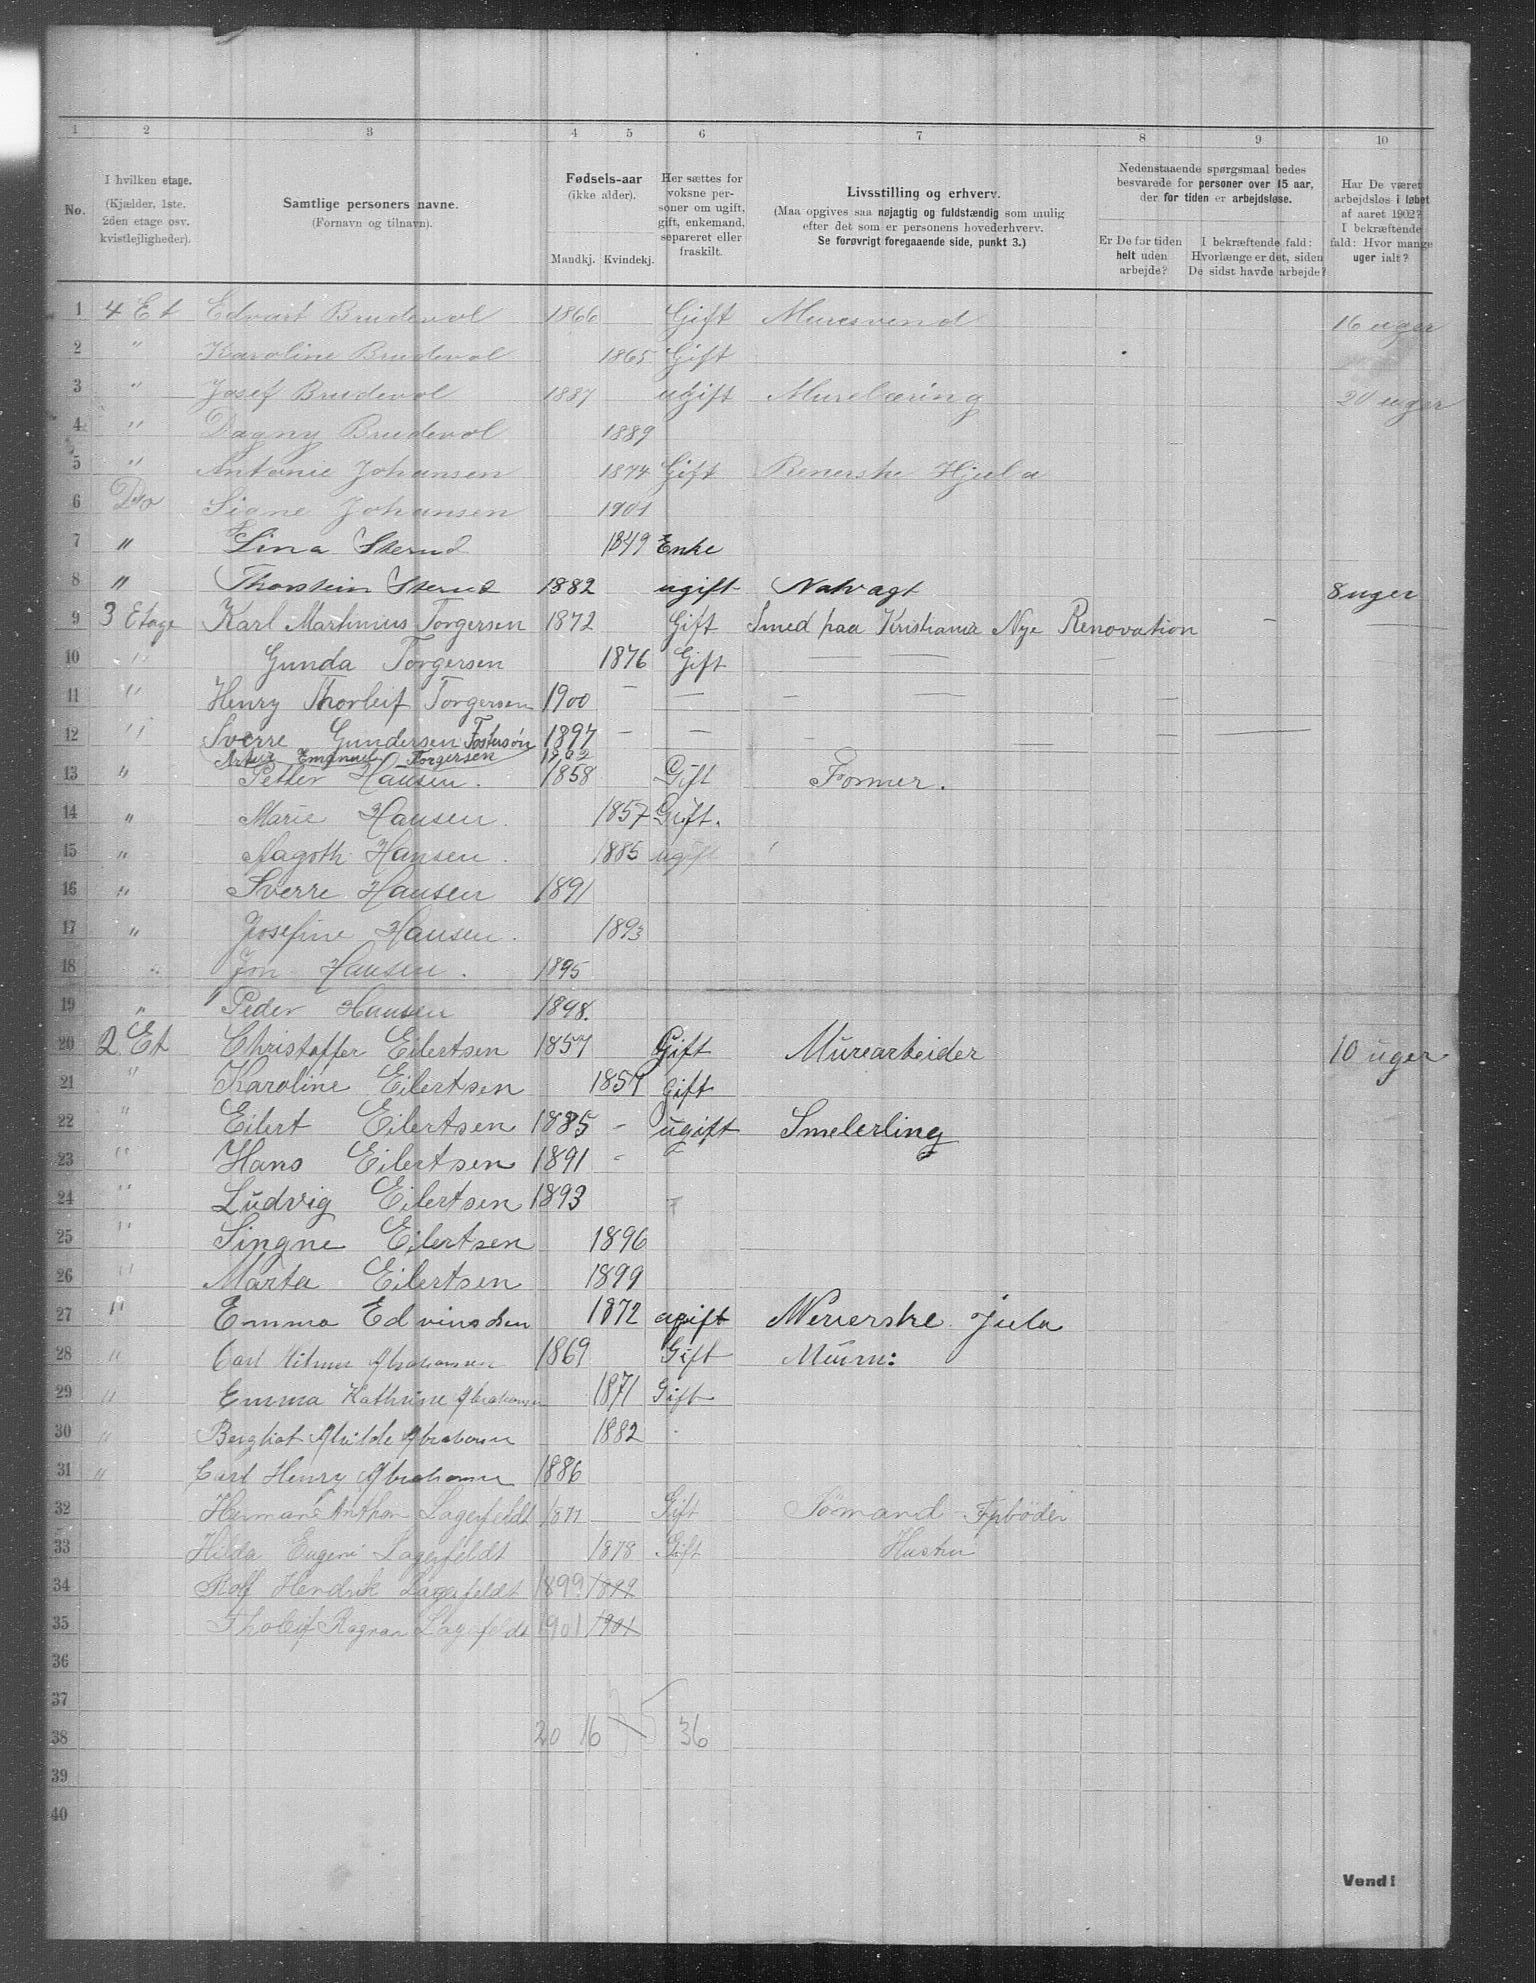 1 2 3 4 5 6 7 8 9 10
No.
I hvilken etage. (Kjælder, 1ste, 2den etage osv. kvistlejligheder).
Samtlige personers navne. (Fornavn og tilnavn).
Fødsels-aar (ikke alder). Mandkj. Kvindekj.
Her sættes for voksne personer om ugift, gift, enkemand, separeret eller fraskilt.
Livsstilling og erhverv.
(Maa opgives saa nøjagtig og fuldstændig som mulig efter det som er personens hovederhverv.
Se forøvrigt foregaaende side, punkt 3.)
Nedenstaaende spørgsmaal bedes besvarede for personer over 15 aar, der for tiden er arbejdsløse.
Er De for tiden helt uden arbejde?
I bekræftende fald: Hvorlænge er det, siden De sidst havde arbejde?
Har De været arbejdsløs i løbet af aaret 1902? I bekræftende fald: Hvor mange uger ialt?
1 4 Et Edvart Brudevol 1866 Gift Muresvend 16 uger
2 " Karoline Brudevol 1865 Gift
3 " Josef Brudevol 1887 ugift Murelæring 20 uger
4 " Dagny Brudevol 1889
5 " Antonie Johansen 1874 Gift Renerske Hjula
6 Do Signe Johansen 1901
7 " Lina Sterud 1849 Enke
8 " Thorstein Sterud 1882 ugift Natvagt 8 uger
9 3 Etage Karl Martinius Torgersen 1872 Gift Smed paa Kristiania Nye Renovation -
10 " Gunda Torgersen 1876 Gift — —
11 " Henry Thorleif Torgersen 1900 - — - —
12 " Sverre Gundersen Fostersøn 1897 - —
Artur Emanuel Torgersen 1902
13 " Petter Hansen. 1858 Gift Former.
14 " Marie Hansen. 1857 Gift.
15 " Aagoth Hansen. 1885 ugift
16 " Sverre Hansen 1891
17 " Josefine Hansen. 1893
18 " Jon Hansen. 1895
19 " Peder Hansen 1898.
20 2 Et Christoffer Eilertsen 1857 Gift Murearbeider 10 uger
21 " Karoline Eilertsen 1857 Gift
22 " Eilert Eilertsen 1885 - ugift Smelerling
23 " Hans Eilertsen 1891 -
24 " Ludvig Eilertsen 1893
25 " Singne Eilertsen 1896
26 " Marta Eilertsen 1899
27 " Emma Edvinsdsen 1872 ugift Neverske Jula
28 " Carl Abrahamsen 1869 Gift Murm:
29 " Emma Kathrine Abrahamsen 1871 Gift
30 " Bergliot Abrahamsen 1882
31 " Carl Henry Abrahamsen 1886
32 Herman Anthon Lagerfeldt 1877 Gift Sømand Fyrbøder
33 Hilda Eugeni Lagerfeldt 1878 Gift Hustru
34 Rolf Hendrik Lagerfeldt 1899 1899
35 Tholeif Ragnar Lagerfeldt 1901 1901
36
37
38 20 16 35 36
39
40
Vend!